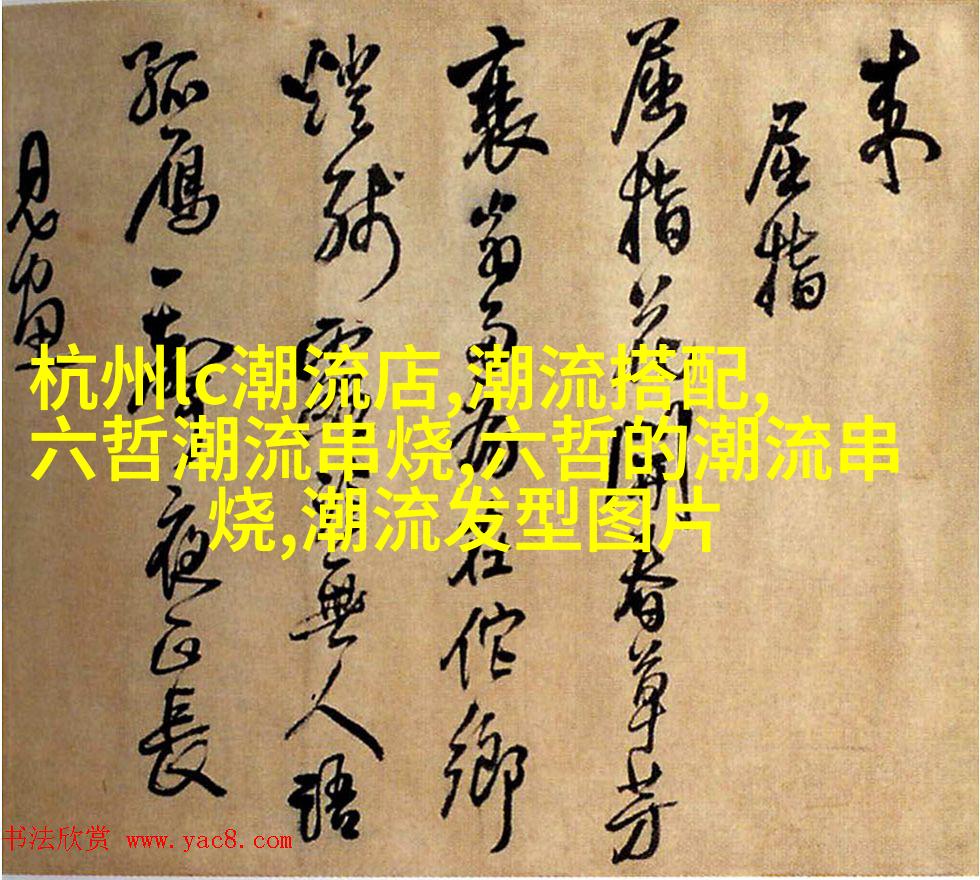 屈指
屈指花開春草芳
衰翁在佗鄉
燈殘無人語
孤雁一聲夜正長
見
杭州lc潮流店,潮流搭配,
六哲潮流串烧,六哲的潮流串
烧,潮流发型图片
书法欣赏 www.yac8.com